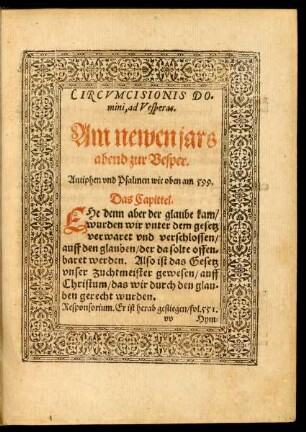 CIRCVMCISIONIS DO-
mini, ad Vesperas.
Am newen jars
abend zur Vesper.
Antiphen vnd Psalmen wie oben am 599.
Das Capittel.
EHe denn aber der glaube kam/
wurden wir vnter dem gesetz
verwaret vnd verschlossen/
auff den glauben/ der da solte offen-
baret werden. Also ist das Gesetz
vnser Zuchtmeister gewesen/ auff
Christum/ das wir durch den glau-
ben gerecht wurden.
Responsorium. Er ist herab gestiegen/ fol. 551.
vv Hym-